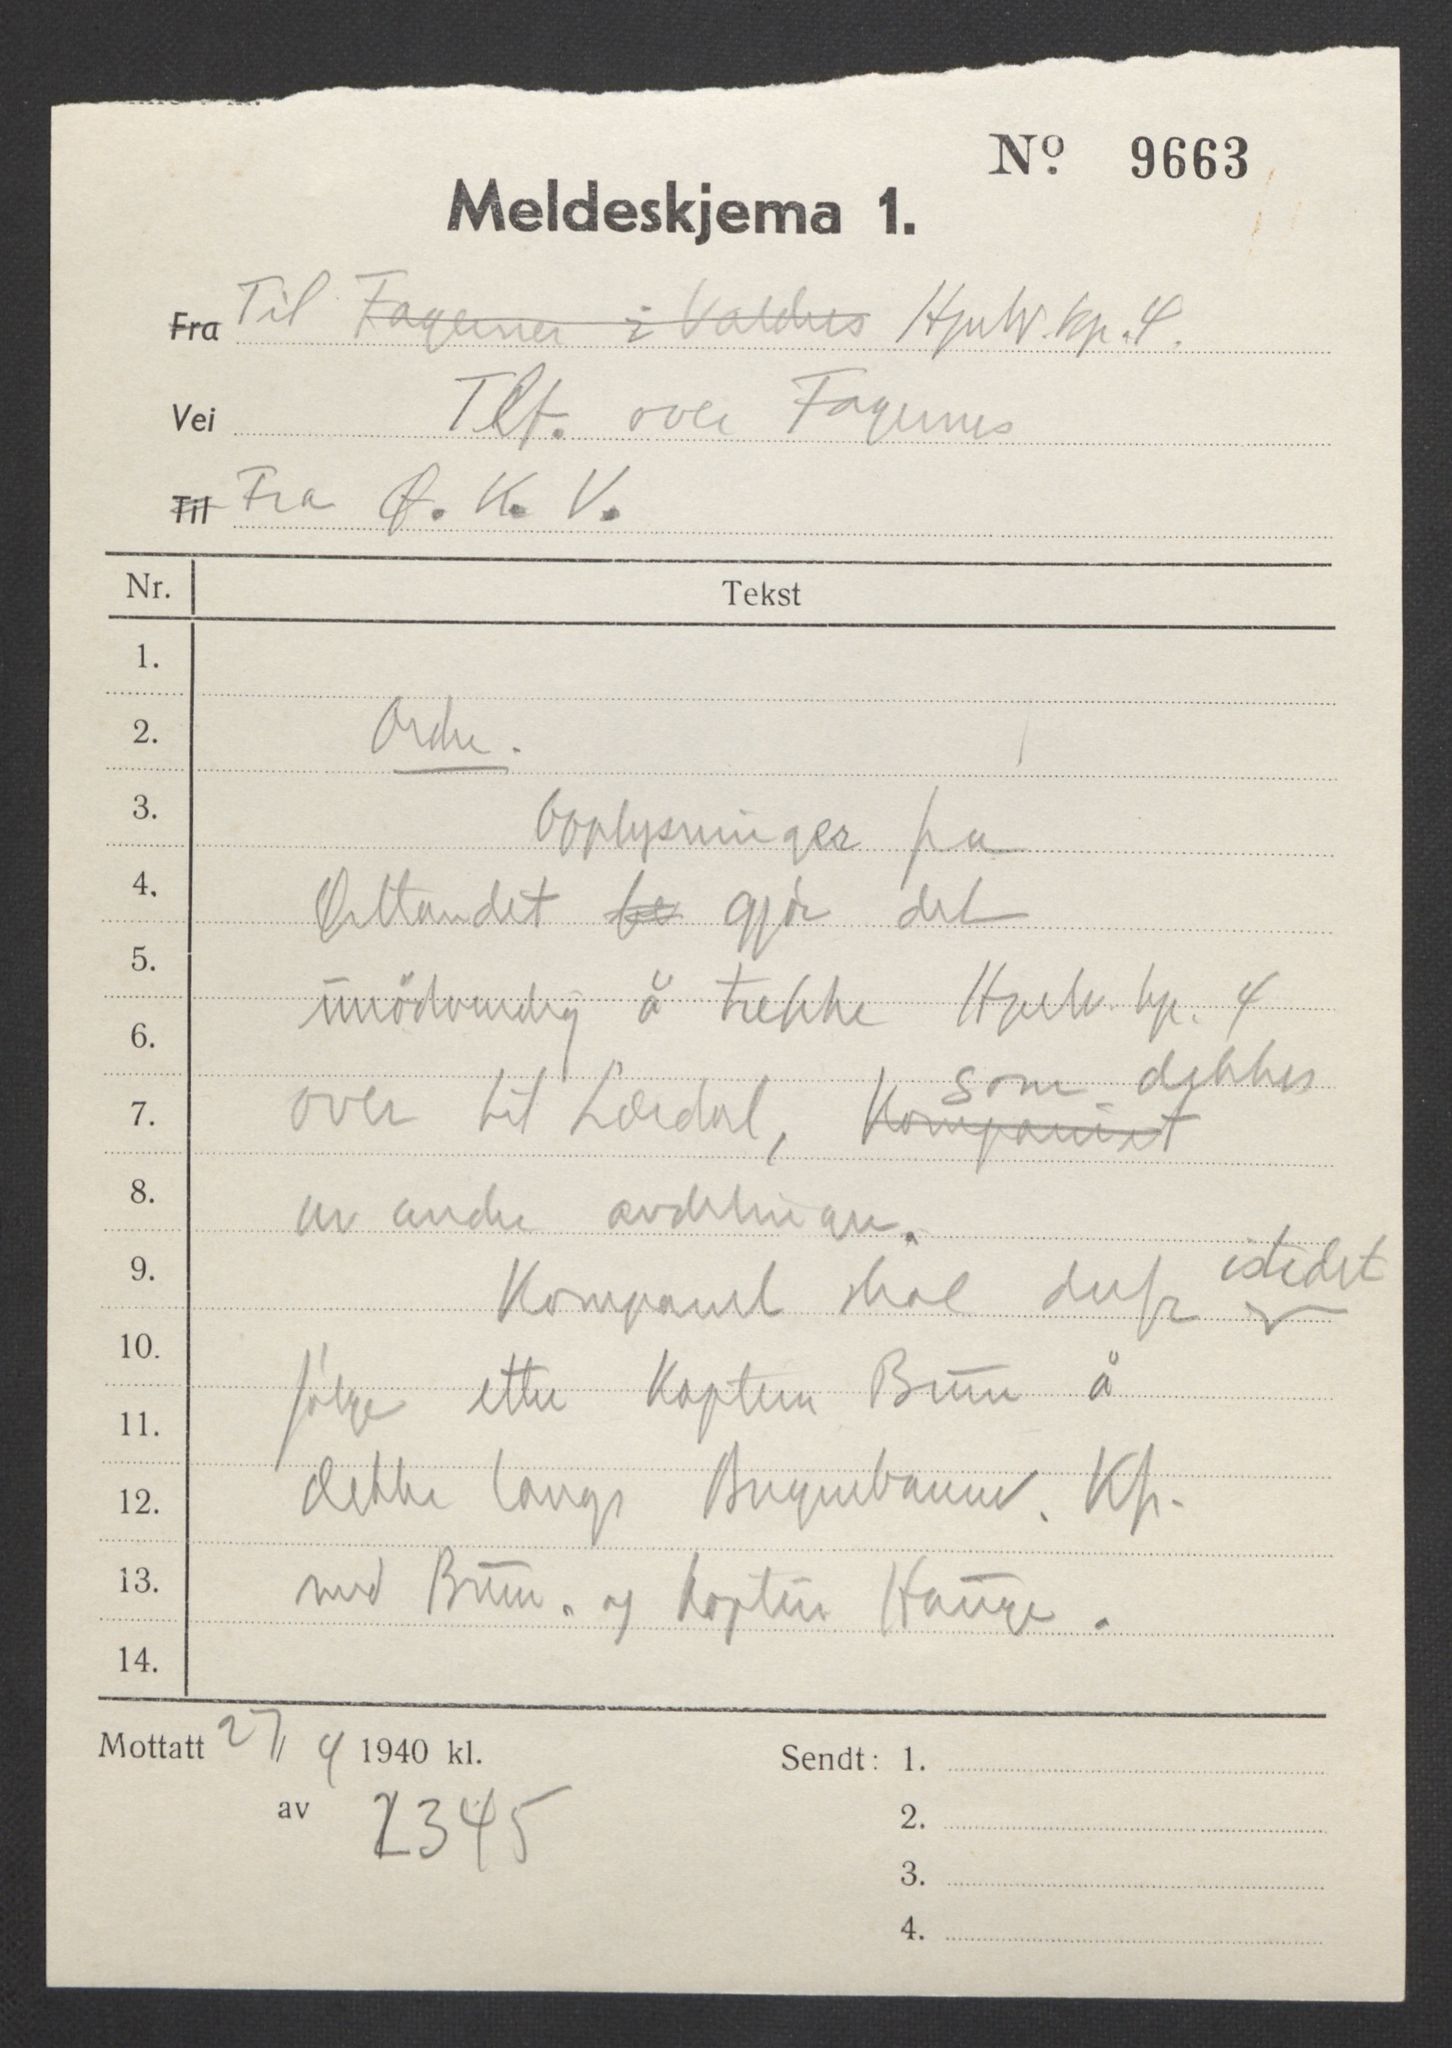 No 9663
Meldeskjema 1.
Fra Til Fagernes i Valdres Hjulv. kp. 4.
Vei Tlf. over Fagernes
Til Fra Ø. K. V.
Nr. Tekst
1.
2. Ordre.
3. Opplysninger fra
4. Østlandet gjør det
5. unödvendig å trekke Hjulv. kp. 4
6. som dekkes
7. over til Lærdal, Kompaniet
8. av andre avdelinger.
9. Kompaniet skal derfor istedet
10. følge etter Kaptein Bruun å
11. dekke langs Bergensbanen. Kfr.
12. med Bruun. og kaptein Hauge.
13.
14.
Mottatt 27/4 1940 kl.
av 2345
Sendt: 1.
2.
3.
4.